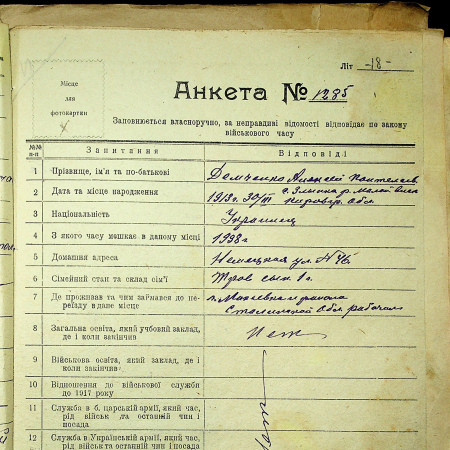 Літ -18-
Місце
для
фотокартки
Анкета № 1285
Заповнюється власноручно, за неправдиві відомості відповідає по закону
військового часу
№№ п-п Запитання Відповіді
1 Прізвище, ім'я та по-батькові Демченко Алексей
2 Дата та місце народження 1913 г. 30/III
Кировогр. обл
3 Національність Украинец
4 З якого часу мешкає в даному місці 1938 г
5 Домашня адреса Немецкая ул. N 46
6 Сімейний стан та склад сім'ї сын 1 г.
7 Де проживав та чим займався до пе-
реїзду в дане місце
г. Макеевка
Сталинской обл. рабочим
8 Загальна освіта, який учбовий заклад,
де і коли закінчив
Нет
9 Військова освіта, який заклад, де і
коли закінчив
10 Відношення до військової служби
до 1917 року
11 Служба в б. царській армії, який час,
рід військ та останній чин і
посада
12 Служба в Українській армії, який час,
рід військ та останній чин і посада